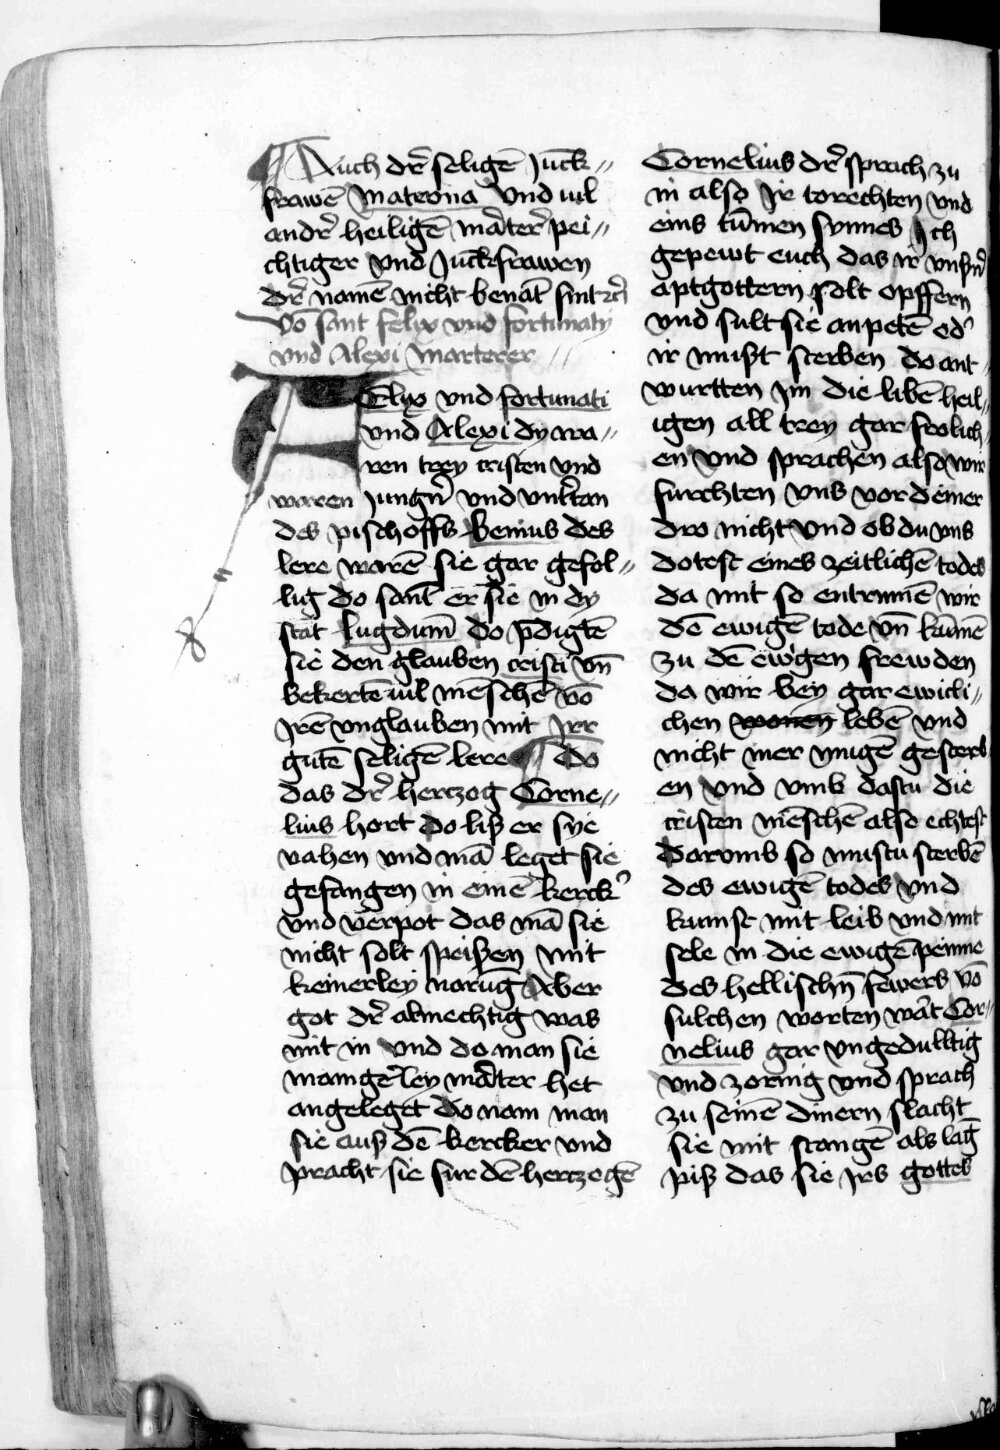 Auch dr̄ seligē Juck⸗
frawē Matrona Vnd uil
andr̄ heiligē mart̄er pei⸗
chtiger vnd Juckfrawen
dr̄ namē nicht benāt sint
Vō sant felix vnd fortunaty
vnd Alexi Marterer
Felix vnd fortunati
vnd Alexi dy wa⸗
ren trey cristen vnd
waren Jungn̄ vnd vnt̄tan
des pischoffs Benius des
lere warē sie gar gefol⸗
lig do sant er sie in dy
stat lugdum̄ do p̄digtē
sie den glauben cristi vn̄
bekertē uil mēschē vō
Jrē vnglauben mit Jrr
gutē seligē lere Do
das dr̄ hertzog Corne⸗
lius hort do liß er sye
vahen vnd mā leget sie
gefangen in einē kerck᾿
vnd verpot das mā sie
nicht solt speißen mit
keinerley narūg Aber
got dr̄ almechtig was
mit in vnd do man sie
mangerley mat̄er het
angeleget do nam man
sie auß dē kercker vnd
pracht sie fur dē hertzogē
Cornelius dr̄ sprach zu
in also Jr torechten vnd
eins tūmen synnes Jch
gepewt euch das ir vnsn̄
aptgottern solt opffern
vnd sult sie anpetē od᾿
ir mußt sterben do ant⸗
wurtten Jm die libē heil⸗
igen all trey gar frolich⸗
en vnd sprachen also wir
furchten vns vor deiner
dro nicht vnd ob du vns
dotest eines zeitlichē todes
da mit so entrinnē wir
dē ewigē tode vn̄ kumē
zu dē ewigen frewden
da wir bey gar ewicli⸗
chen wonen lebē vnd
nicht mer mugē gesterb
en vnd vmb dastu die
cristen mēschē also echtest
Darumb so mustu sterbē
des ewigē todes vnd
kumst mit leib vnd mit
sele in die ewigē peinne
des hellischn̄ fewers vō
sulchen worten wa᾿t Cor⸗
nelius gar vngedulltig
vnd zornig vnd sprach
zu seinē dinern slacht
sie mit stangē als lāg
piß das sie Jrs gottes